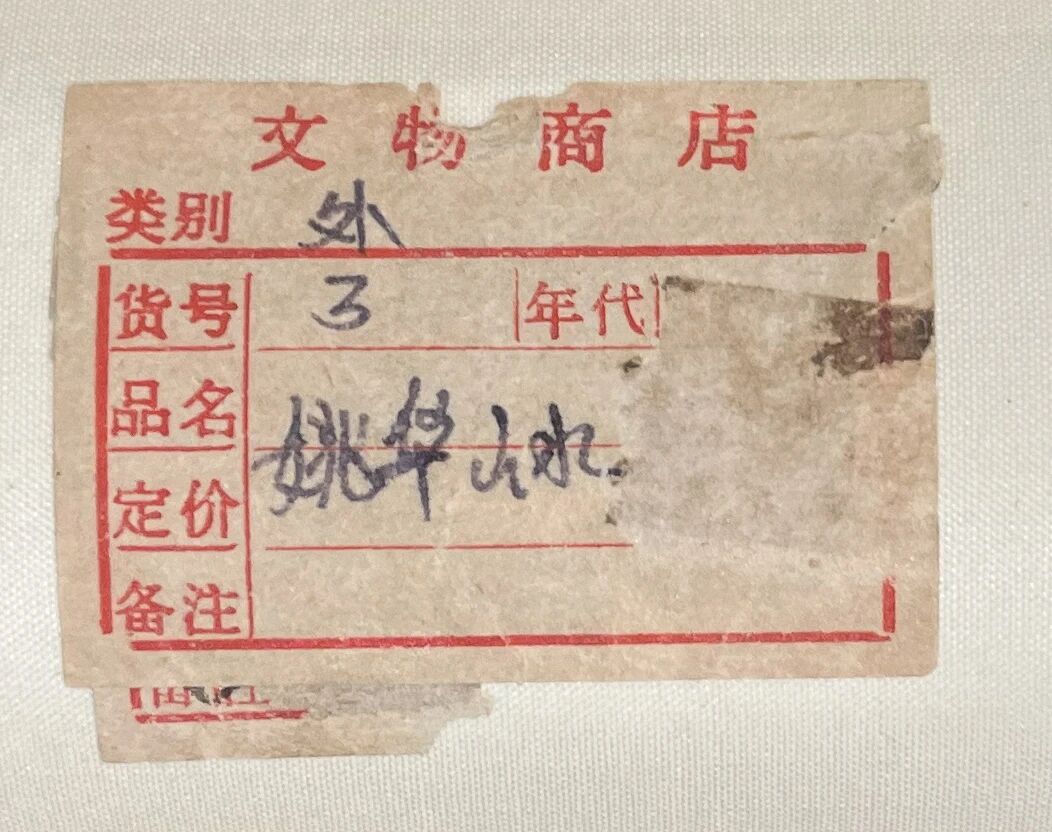 文物商店
类别 外
货号 3 年代
品名 姚华山水
定价
备注
备注